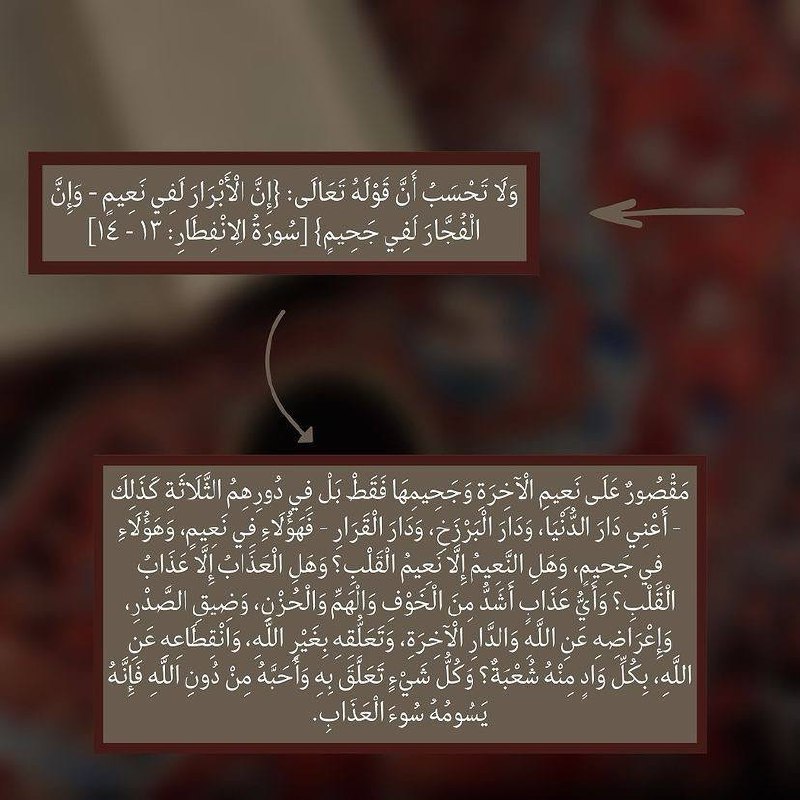 وَلَا تَحْسَبُ أَنَّ قَوْلَهُ تَعَالَى: {إِنَّ الْأَبْرَارَ لَفِي نَعِيمٍ - وَإِنَّ
الْفُجَّارَ لَفِي جَحِيمٍ} [سُورَةُ الِانْفِطَارِ: ١٣ - ١٤]
مَقْصُورٌ عَلَى نَعِيمِ الْآخِرَةِ وَجَحِيمِهَا فَقَطْ بَلْ فِي دُورِهِمُ الثَّلَاثَةِ كَذَلِكَ
- أَعْنِي دَارَ الدُّنْيَا، وَدَارَ الْبَرْزَخِ، وَدَارَ الْقَرَارِ - فَهَؤُلَاءِ فِي نَعِيمٍ، وَهَؤُلَاءِ
فِي جَحِيمٍ، وَهَلِ النَّعِيمُ إِلَّا نَعِيمُ الْقَلْبِ؟ وَهَلِ الْعَذَابُ إِلَّا عَذَابُ
الْقَلْبِ؟ وَأَيُّ عَذَابٍ أَشَدُّ مِنَ الْخَوْفِ وَالْهَمِّ وَالْحُزْنِ، وَضِيقِ الصَّدْرِ،
وَإِعْرَاضِهِ عَنِ اللَّهِ وَالدَّارِ الْآخِرَةِ، وَتَعَلُّقِهِ بِغَيْرِ اللَّهِ، وَانْقِطَاعِهِ عَنِ
اللَّهِ، بِكُلِّ وَادٍ مِنْهُ شُعْبَةٌ؟ وَكُلُّ شَيْءٍ تَعَلَّقَ بِهِ وَأَحَبَّهُ مِنْ دُونِ اللَّهِ فَإِنَّهُ
يَسُومُهُ سُوءَ الْعَذَابِ.